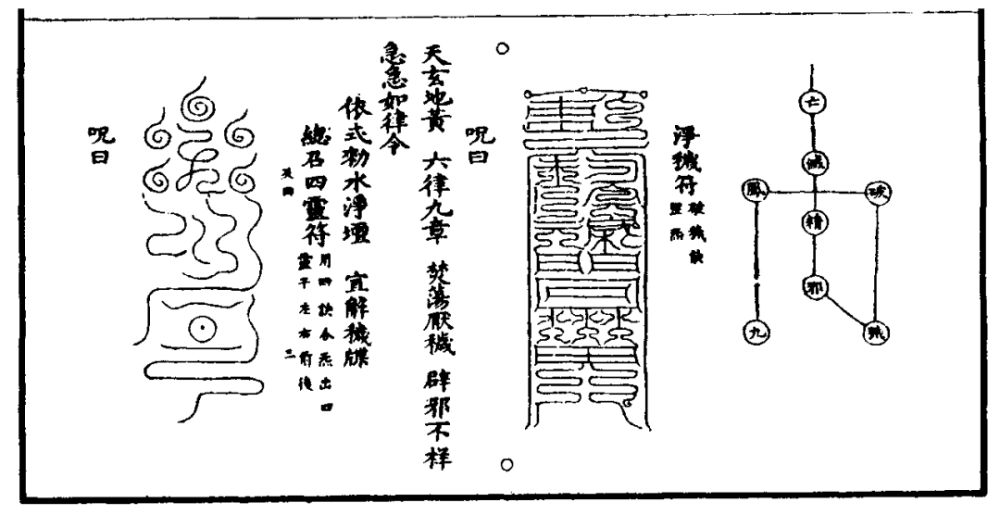 亡
滅
破
精
邪
九
淨穢符
破穢訣
呪曰
天玄地黃 六律九章 焚蕩厭穢 辟邪不祥
急急如律令
依式勑水淨壇 宜解穢牒
總召四靈符
用四訣令炁出四
左右前後
呪曰